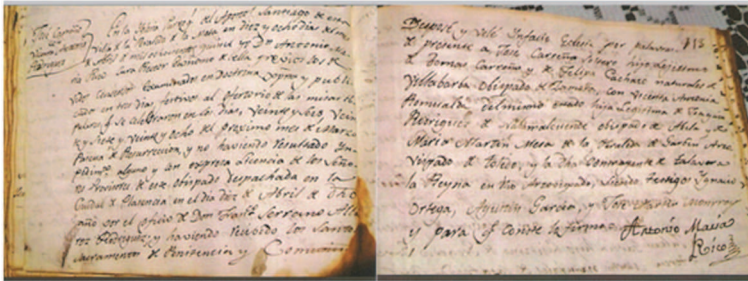 Jose Carreño
Vicenta Antonia
En la Iglesia Parroql. del Apostol Santiago de esta
Villa de la Peraleda de la Mata en diez y ocho dias del mes
de Abril de mil ochocientos quince yo Dn. Antonio Ma-
ria Rico Cura Rector Economo de ella previos los de-
vidos examinados en Doctrina propios y publi-
cados en tres dias festivos al Ofertorio de las misas
que se celebraron en los dias veinte y seis, vein-
te y siete y veinte y ocho del proximo mes de Marzo
Pascua de Resurreccion, y no haviendo resultado im-
pedimto. alguno y con expresa licencia de los Seño-
res Provisores de este obispado despachada en la
Ciudad de Plasencia en el dia diez de Abril de dho
año en el oficio de Don Franco. Serrano
y haviendo recivido los Santos
Sacramentos de Penitencia y Comunion
Desposé y Velé Infacie Eclesie por palabras 113
de presente a Jose Carreño Soltero hijo legitimo
de Tomas Carreño y de Felipa naturales de
Villabarba obispado de con Vicenta Antonia
del mismo estado hija Legitima de Joaquin
Henriquez de obispado de Abila y de
Maria Martin Mesa de la de Arzo-
vispado de Toledo, y la dha Contrayente de Talavera
la Reyna en dho Arzovispado, siendo testigos Ignacio
Ortega, Agustin Garcia, y Jose
y para q conste lo firmo = Antonio Maria
Rico